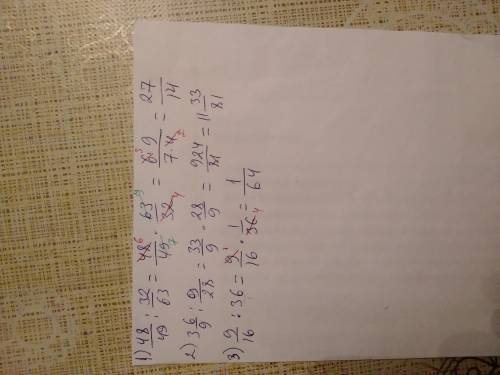 1) 48/49 : 32/63 = 48⁶/49₇ · 63⁹/32₄ = 6³·9/7·4₂ = 27/14
2) 3 6/9 : 9/28 = 33/9 · 28/9 = 924/81 = 11 33/81
3) 9/16 : 36 = 9¹/16 · 1/36₄ = 1/64